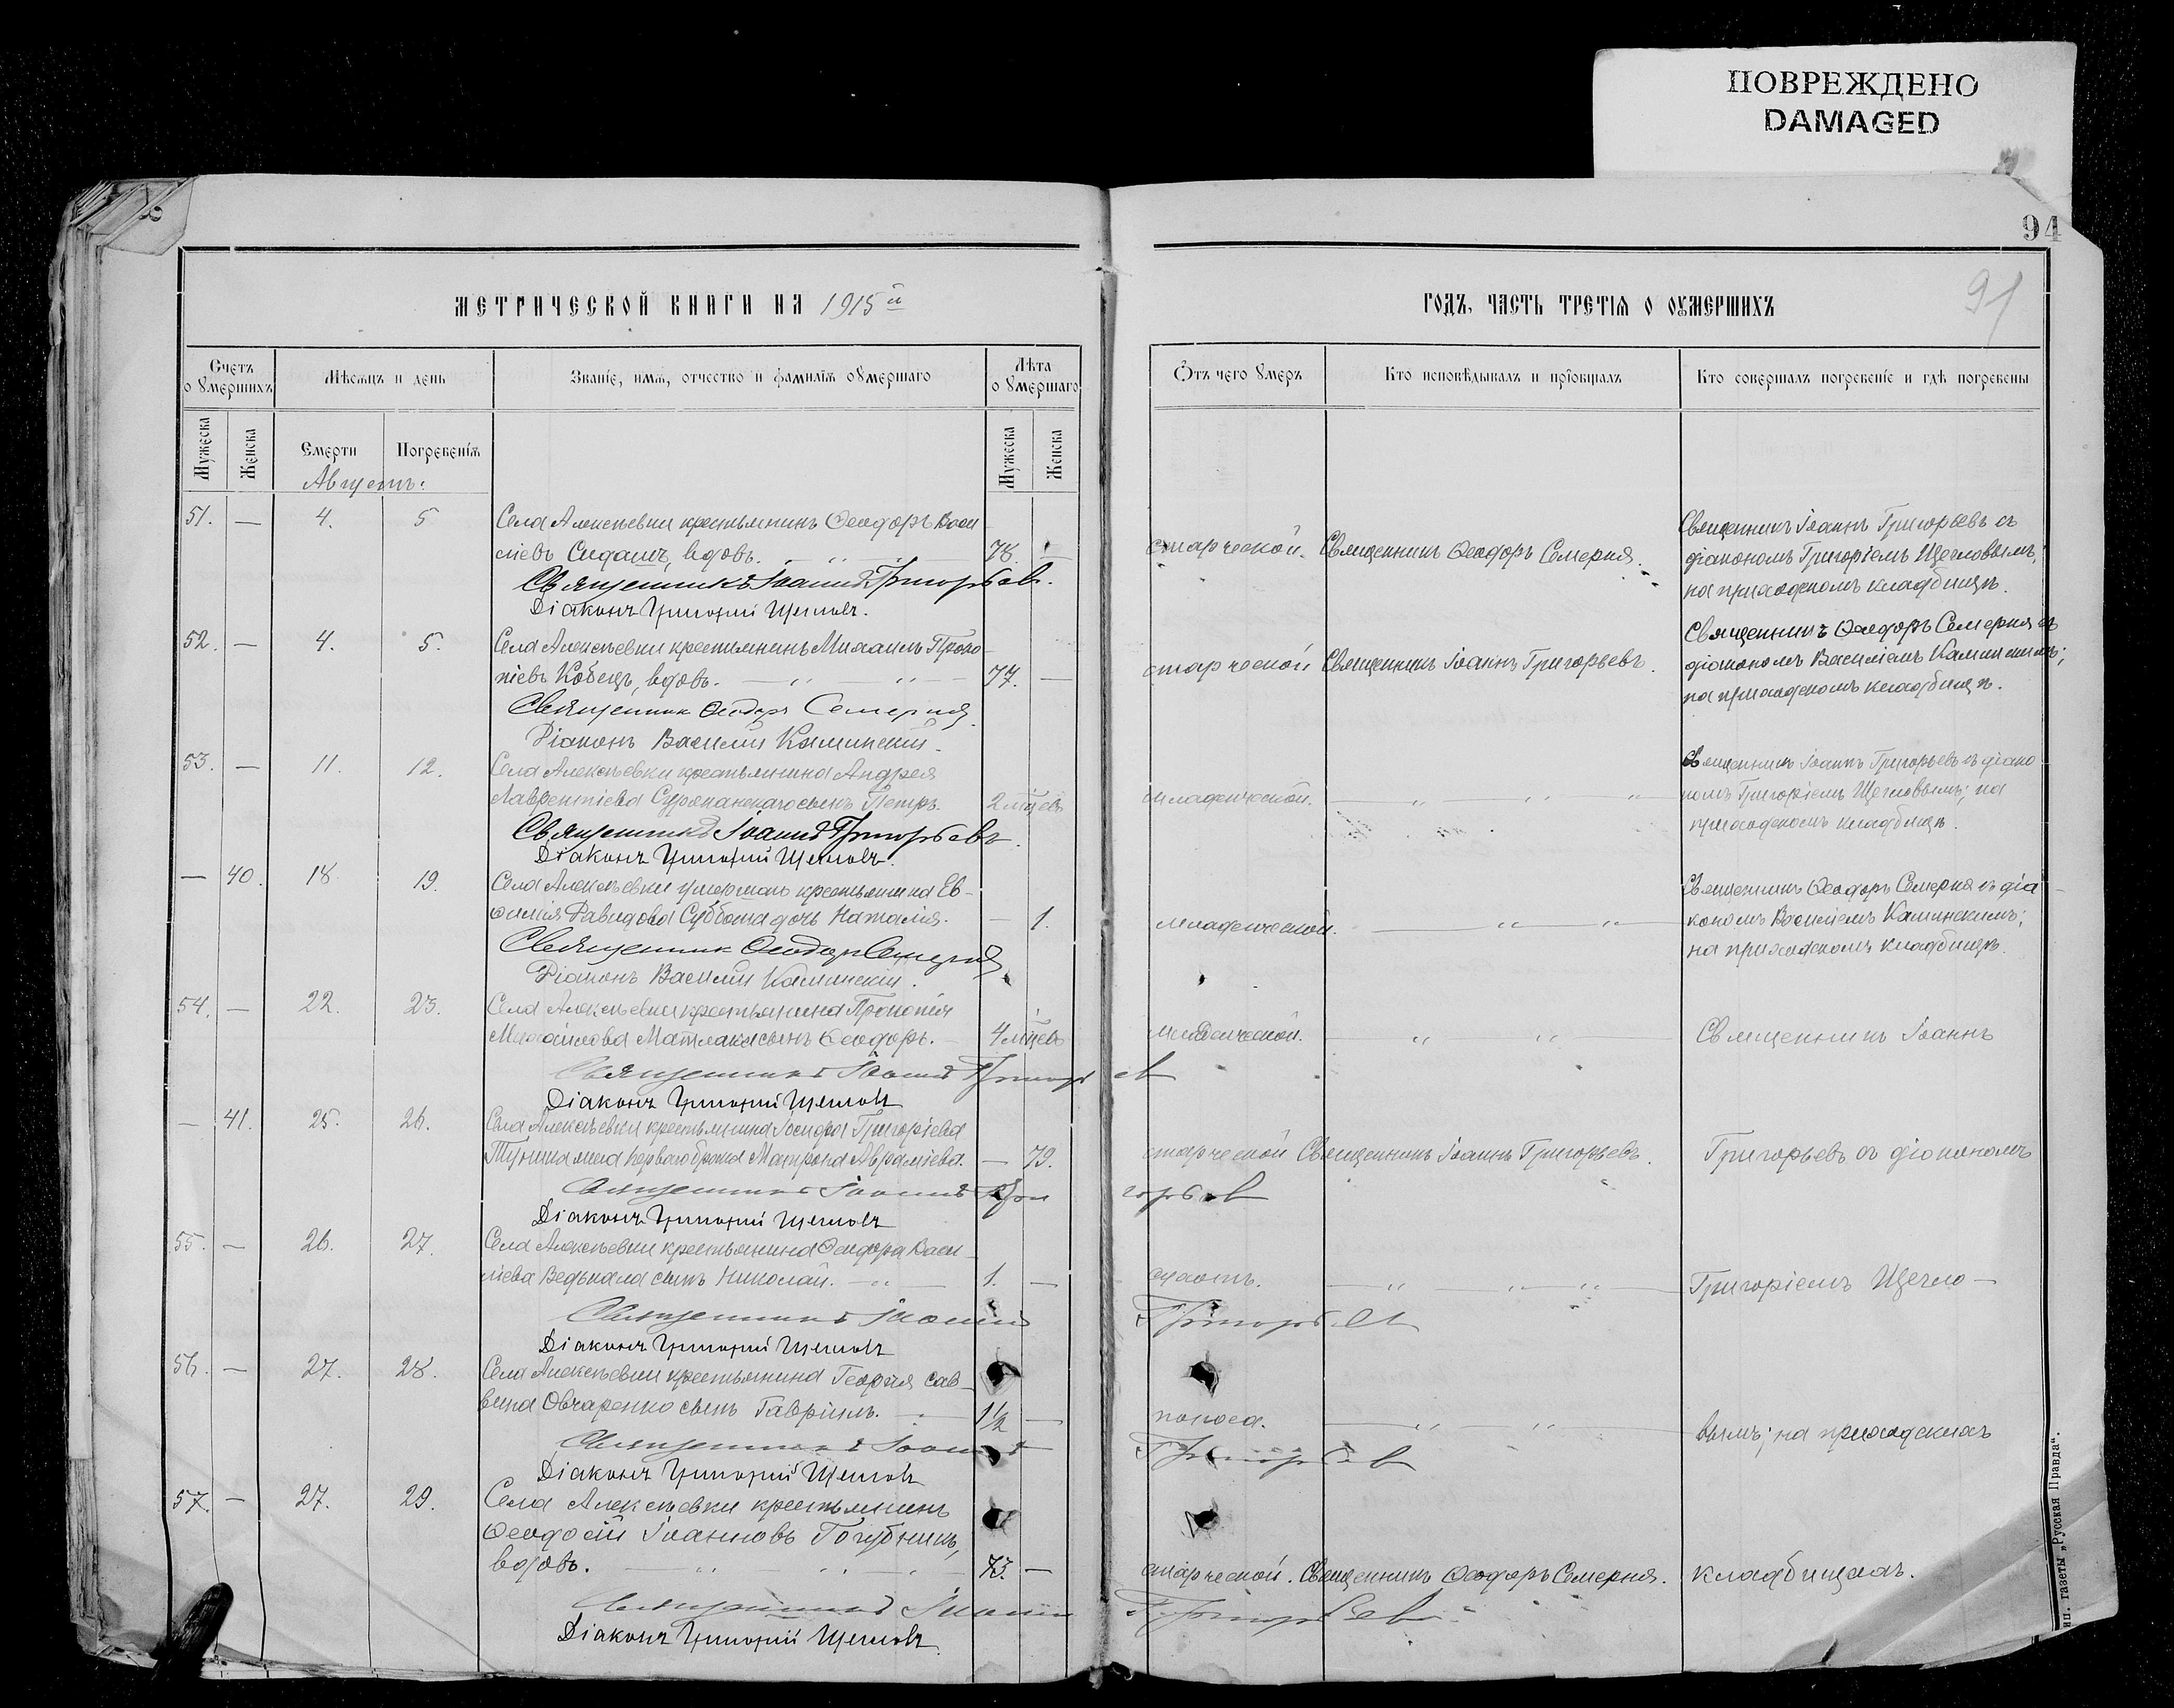 ПОВРЕЖДЕНО
DAMAGED
94
91
МЕТРИЧЕСКОЙ КНИГИ НА 1915й
ГОДЪ, ЧАСТЬ ТРЕТІѦ О ОУМЕРШИХЪ
Счетъ о Умершихъ
Мѣсяцъ и день
Званіе, имѧ, отчество и фамиліѧ оумершаго
Лѣта о Умершаго
Мужеска
Женска
Смерти
Погребеніѧ
Мужеска
Женска
Отъ чего Умеръ
Кто исповѣдывалъ и пріобщалъ
Кто совершалъ погребеніе и гдѣ погребены
Августъ.
51. — 4. 5 Села Алексѣевки крестьянинъ Ѳеодоръ Васи
ліевъ Сидашъ, вдовъ. 78. — старческой. Священникъ Ѳеодоръ Семерня.
Священникъ Іоаннъ Григорьевъ съ
діакономъ Григоріемъ Щегловымъ;
на приходскомъ кладбищѣ.
Священникъ Іоаннъ Григорьевъ.
Діаконъ Григорій Щегловъ.
52. — 4. 5. Села Алексѣевки крестьянинъ Михаилъ Проко
піевъ Кобецъ, вдовъ. 77. — старческой Священникъ Іоаннъ Григорьевъ.
Священникъ Ѳеодоръ Семерня съ
діакономъ Василіемъ Каминскимъ;
на приходскомъ кладбищѣ.
Священник Ѳеодоръ Семерня.
Діаконъ Василий Каминскій.
53. — 11. 12. Села Алексѣевки крестьянина Андрея
Лаврентіева сынъ Петръ. 2 мѣцев младенческой.
Священникъ Іоаннъ Григорьевъ съ діако
номъ Григоріемъ Щегловымъ; на
приходскомъ кладбищѣ.
Священникъ Іоаннъ Григорьевъ.
Діаконъ Григорій Щегловъ.
— 40. 18. 19. Села Алексѣевки умершаго крестьянина Ев-
ѳимія Давидова Суббота дочь Наталія. — 1. младенческой.
Священникъ Ѳеодоръ Семерня съ діа
кономъ Василіемъ Каминскимъ;
на приходскомъ кладбищѣ.
Священник Ѳеодоръ Семерня
Діаконъ Василий Каминскій.
54. — 22. 23. Села Алексѣевки крестьянина Прокопія
Михайлова Матлака сынъ Ѳеодоръ. 4 мѣцев младенческой. Священникъ Іоаннъ
Священникъ Іоаннъ Григорьев
Діаконъ Григорій Щегловъ
— 41. 25. 26. Села Алексѣевки крестьянина Іосифа Григоріева
жена перваго брака Матрона Авраміева. — 79. старческой Священникъ Іоаннъ Григорьевъ. Григорьевъ съ діакономъ
Священникъ Іоаннъ Григорьев
Діаконъ Григорій Щегловъ
55. — 26. 27. Села Алексѣевки крестьянина Ѳеодора Васи
ліева Ведькала сынъ Николай. 1. — Григоріемъ Щегло-
Священникъ Іоаннъ Григорьев
Діаконъ Григорій Щегловъ
56. — 27. 28. Села Алексѣевки крестьянина Георгія Сав-
вина Овчаренко сынъ Гавріилъ. 1½ — поноса. вымъ; на приходскихъ
Священникъ Іоаннъ Григорьев
Діаконъ Григорій Щегловъ
57. — 27. 29. Села Алексѣевки крестьянинъ
Ѳеодосій Іоанновъ Голубникъ,
вдовъ. 73. — старческой. Священникъ Ѳеодоръ Семерня. кладбищахъ.
Священникъ Іоаннъ Григорьев.
Діаконъ Григорій Щегловъ.
газеты „Русская Правда".